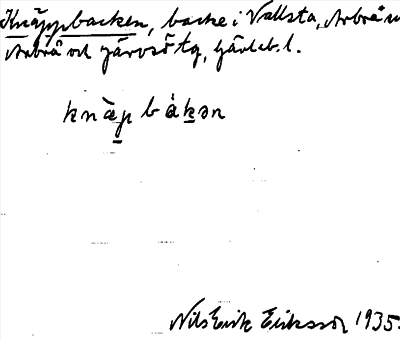 Knäppbacken, backe i Vallsta, Arbrå
Arbrå och Järvsö tg, Gävleb. l.
knàp bákən
Nils Erik Eriksson 1935.